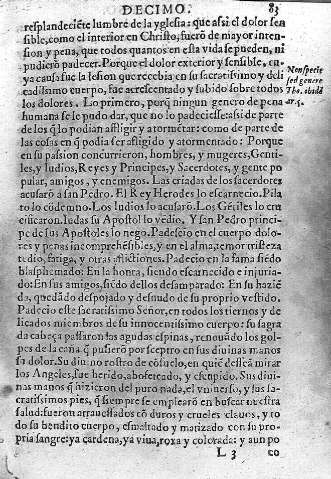 DECIMO. 83
resplandeciẽte lumbre de la yglesia: que assi el dolor sen
sible, como el interior en Christo, fuerõ de mayor inten-
sion y pena, que todos quantos en esta vida se pueden, ni
pudierõ padecer. Porque el dolor exterior y sensible, cu-
ya causa fue la lesion que recebia en su sacratissimo y deli
cadissimo cuerpo, fue acrescentado y subido sobre todos
los dolores. Lo primero, porq̃ ningun genero de pena
humana se le pudo dar, que no lo padeciesse assi de parte
de los q̃ lo podian affligir y atormẽtar: como de parte de
las cosas en q̃ podia ser afligido y atormentado: Porque
en su passion concurrieron, hombres, y mugeres, Genti-
les, y Iudios, Reyes y Principes, y Sacerdotes, y gente po
pular, amigos, y enemigos. Las criadas de los sacerdotes
acusarõ a san Pedro. El Rey Herodes lo escarnecio. Pila
to lo cõdenno. Los Iudios lo acusarõ. Los Gẽtiles lo cru
cificaron. Iudas su Apostol lo vẽdio. Y san Pedro princi
pe de sus Apostoles lo nego. Padescio en el cuerpo dolo
res y penas incomprehẽsibles, y en el alma, temor tristeza
tedio, fatiga, y otras aflictiones. Padecio en la fama siẽdo
blasphemado: En la honra, siendo escarnecido e injuria-
do: En sus amigos, siẽdo dellos desamparado: En su haziẽ
da, quedãdo despojado y desnudo de su proprio vestido.
Padecio este sacratissimo Señor, en todos los tiernos y de
licados miembros de su innocentissimo cuerpo: su sagra
da cabeça passaron las agudas espinas, renouãdo los gol-
pes de la caña q̃ pusierõ por sceptro en sus diuinas manos
su dolor. Su diuino rostro de cõsuelo, en quiẽ dessean mirar
los Angeles, fue herido, abofeteado, y escupido. Sus diui-
nas manos q̃ hizieron del puro nada, el vniuerso, y sus sa-
cratissimos pies, q̃ siempre se emplearõ en buscar nuestra
salud: fueron atrauessados cõ duros y crueles clauos, y to
do su bendito cuerpo, esmaltado y matizado con su pro
pria sangre: ya cardena, ya viua, roxa y colorada: y aun po
L 3 co
Non specie
sed genere
Tho.
ar. 5.